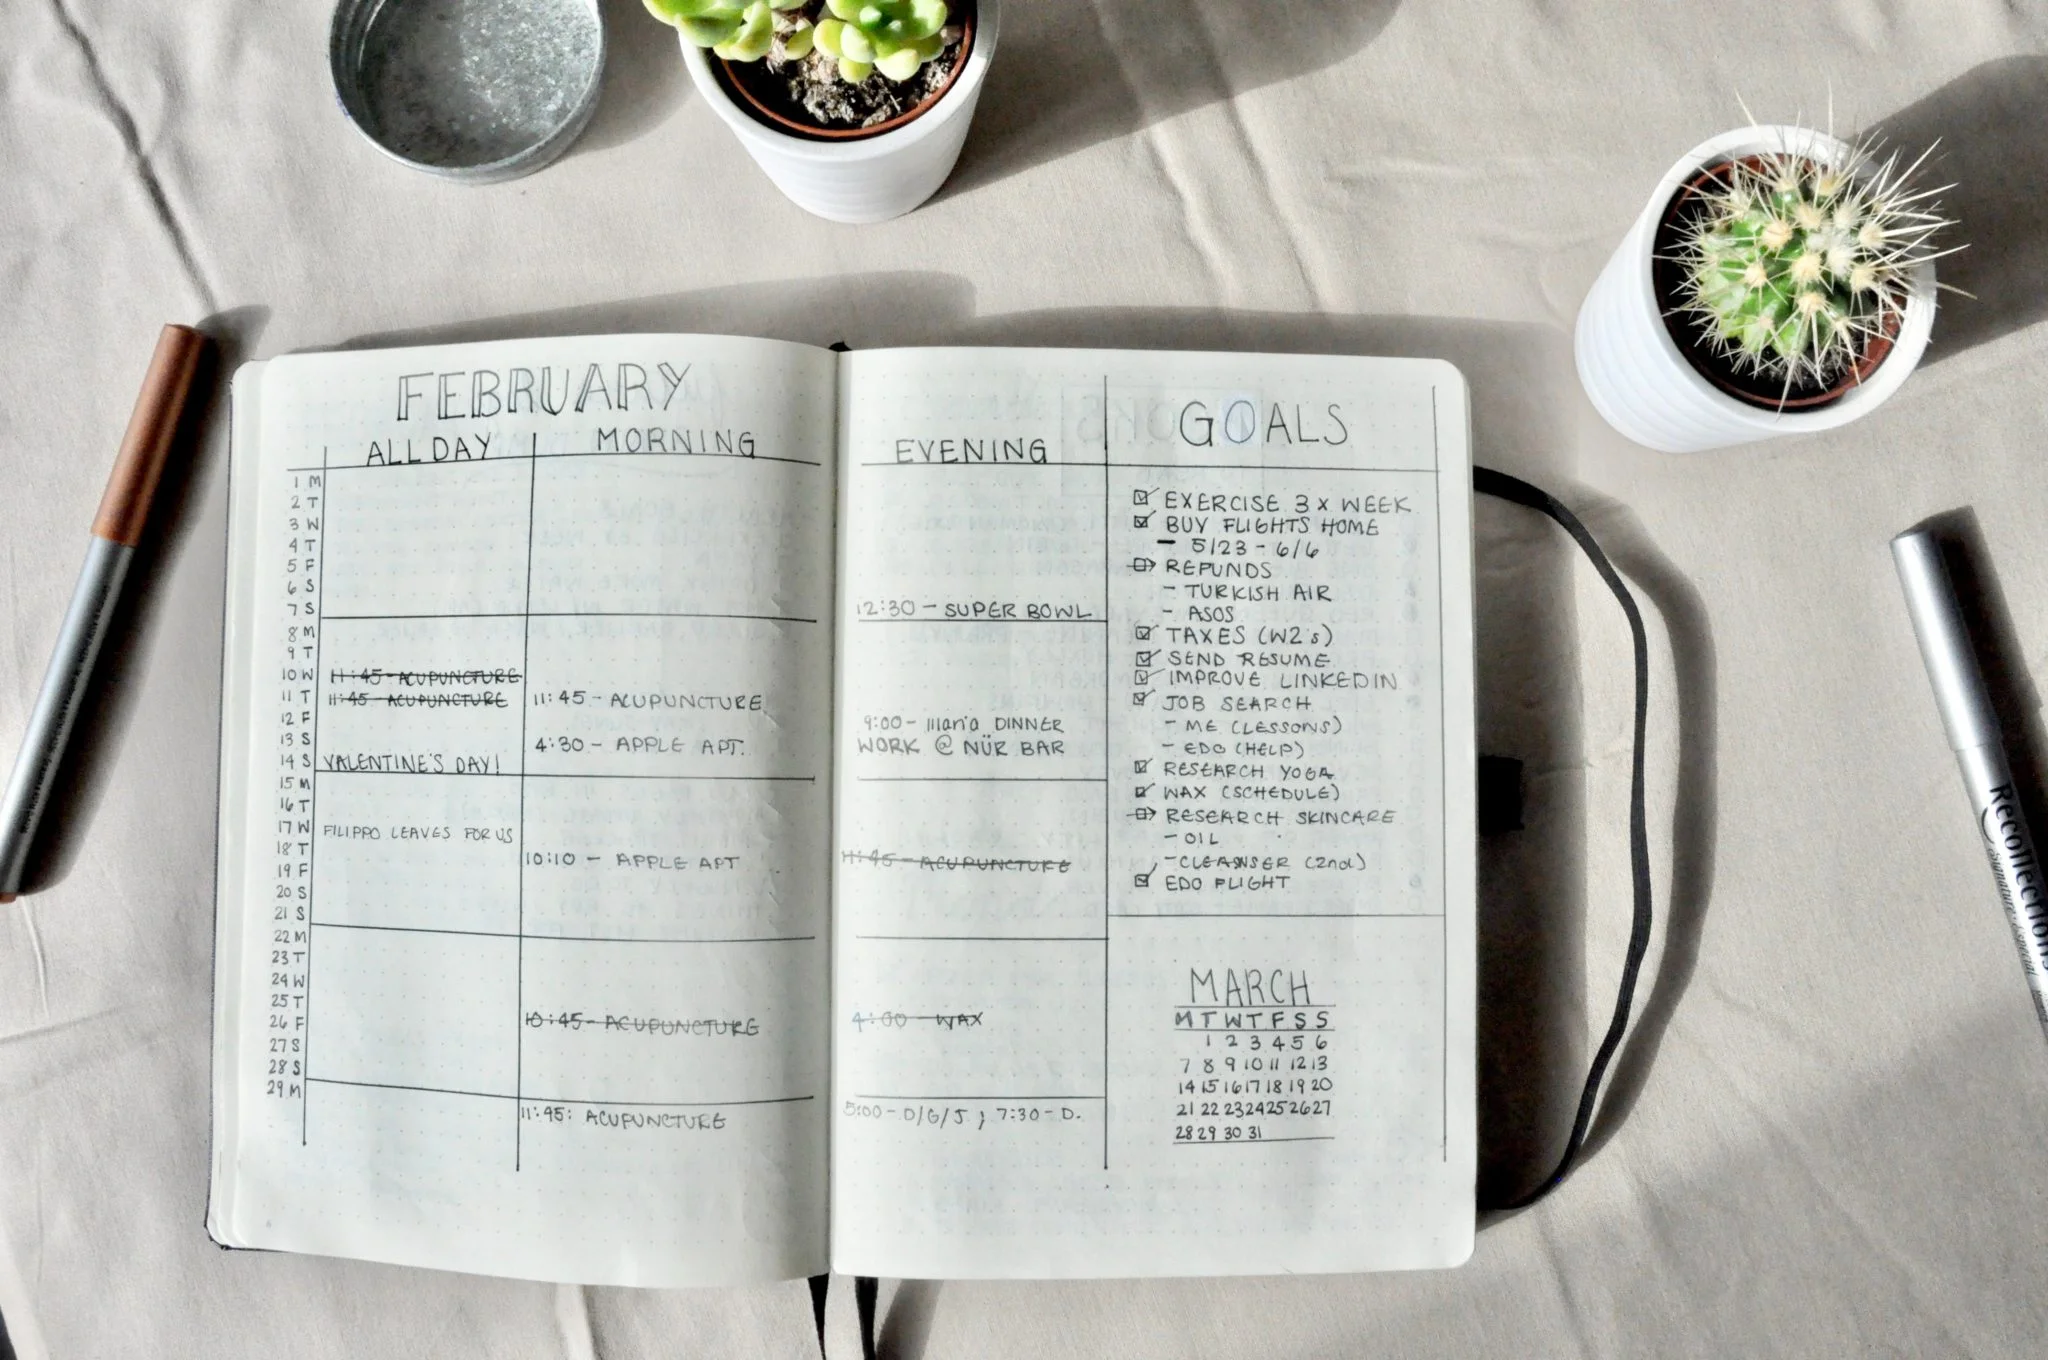 FEBRUARY
ALL DAY
MORNING
1 M
2 T
3 W
4 T
5 F
6 S
7 S
8 M
9 T
10 W 11:45-ACUPUNCTURE
11 T 11:45-ACUPUNCTURE 11:45- ACUPUNCTURE
12 F
13 S 4:30- APPLE APT.
14 S VALENTINE'S DAY!
15 M
16 T
17 W FILIPPO LEAVES FOR US
18 T 10:10 - APPLE APT
19 F
20 S
21 S
22 M
23 T
24 W
25 T
26 F 10:45- ACUPUNCTURE
27 S
28 S
29 M 11:45: ACUPUNCTURE
EVENING
12:30 - SUPER BOWL
9:00- Maria DINNER
WORK @ NÜR BAR
11:45 - ACUPUNCTURE
4:00 - WAX
5:00- D/G/J ; 7:30- D.
GOALS
EXERCISE 3 x WEEK
BUY FLIGHTS HOME
- 5/23 - 6/6
REFUNDS
- TURKISH AIR
- ASOS
TAXES (W2's)
SEND RESUME
IMPROVE LINKEDIN
JOB SEARCH
- ME (LESSONS)
- EDO (HELP)
RESEARCH YOGA
WAX (SCHEDULE)
RESEARCH SKINCARE
- OIL
- CLEANSER (2nd)
EDO FLIGHT
MARCH
M T W T F S S
1 2 3 4 5 6
7 8 9 10 11 12 13
14 15 16 17 18 19 20
21 22 23 24 25 26 27
28 29 30 31
Recollections
Signature Special